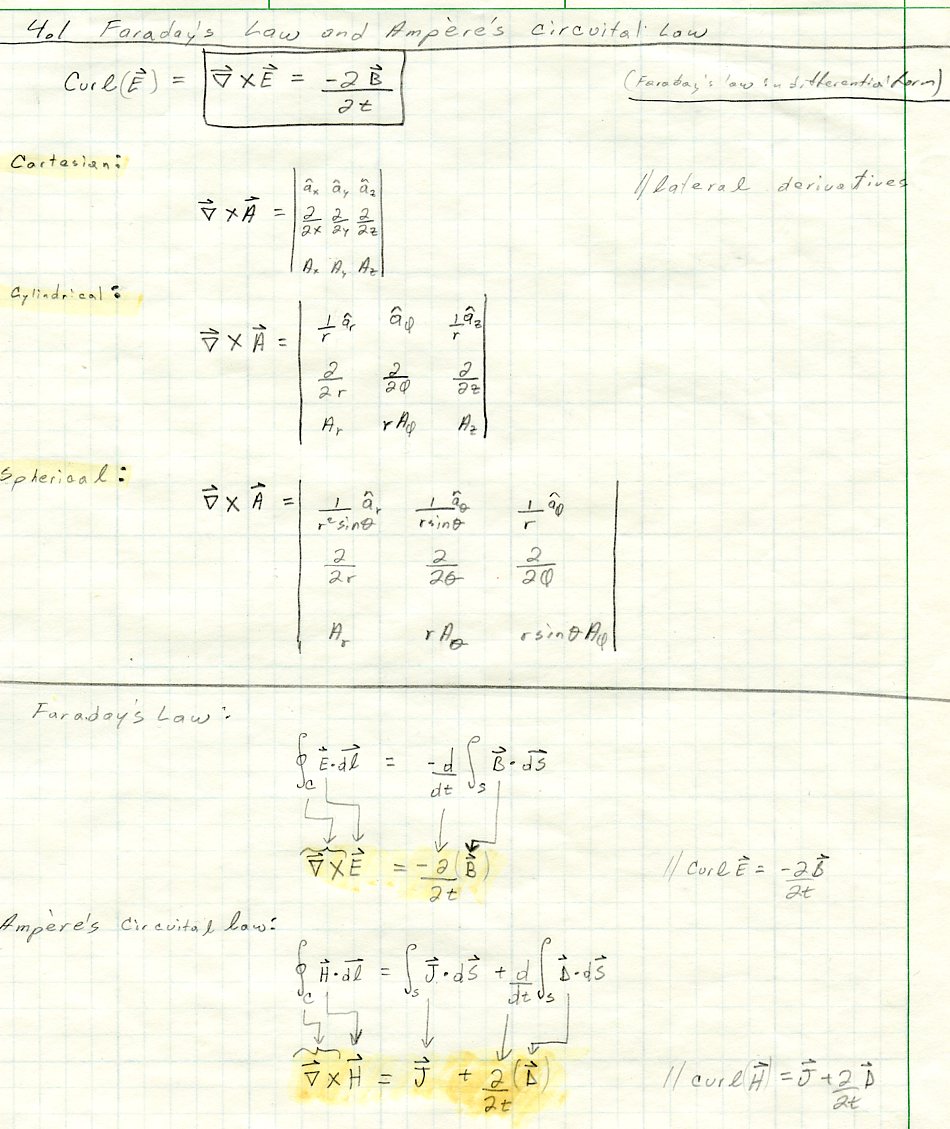 4.1 Faraday's Law and Ampère's Circuital Law
Curl(E⃗) = ∇⃗ × E⃗ = -∂B⃗/∂t (Faraday's law in differential form)
Cartesian:
//lateral derivatives
∇⃗ × A⃗ = | âx ây âz
∂/∂x ∂/∂y ∂/∂z
Ax Ay Az |
Cylindrical:
∇⃗ × A⃗ = | 1/r âr âφ 1/r âz
∂/∂r ∂/∂φ ∂/∂z
Ar rAφ Az |
Spherical:
∇⃗ × A⃗ = | 1/(r² sinθ) âr 1/(r sinθ) âθ 1/r âφ
∂/∂r ∂/∂θ ∂/∂φ
Ar rAθ r sinθ Aφ |
Faraday's Law:
∮C E⃗·dl⃗ = -d/dt ∫S B⃗·dS⃗
∇⃗ × E⃗ = -∂/∂t (B⃗) // Curl E⃗ = -∂B⃗/∂t
Ampère's Circuital law:
∮C H⃗·dl⃗ = ∫S J⃗·dS⃗ + d/dt ∫S D⃗·dS⃗
∇⃗ × H⃗ = J⃗ + ∂/∂t (D⃗) // curl(H⃗) = J⃗ + ∂/∂t D⃗